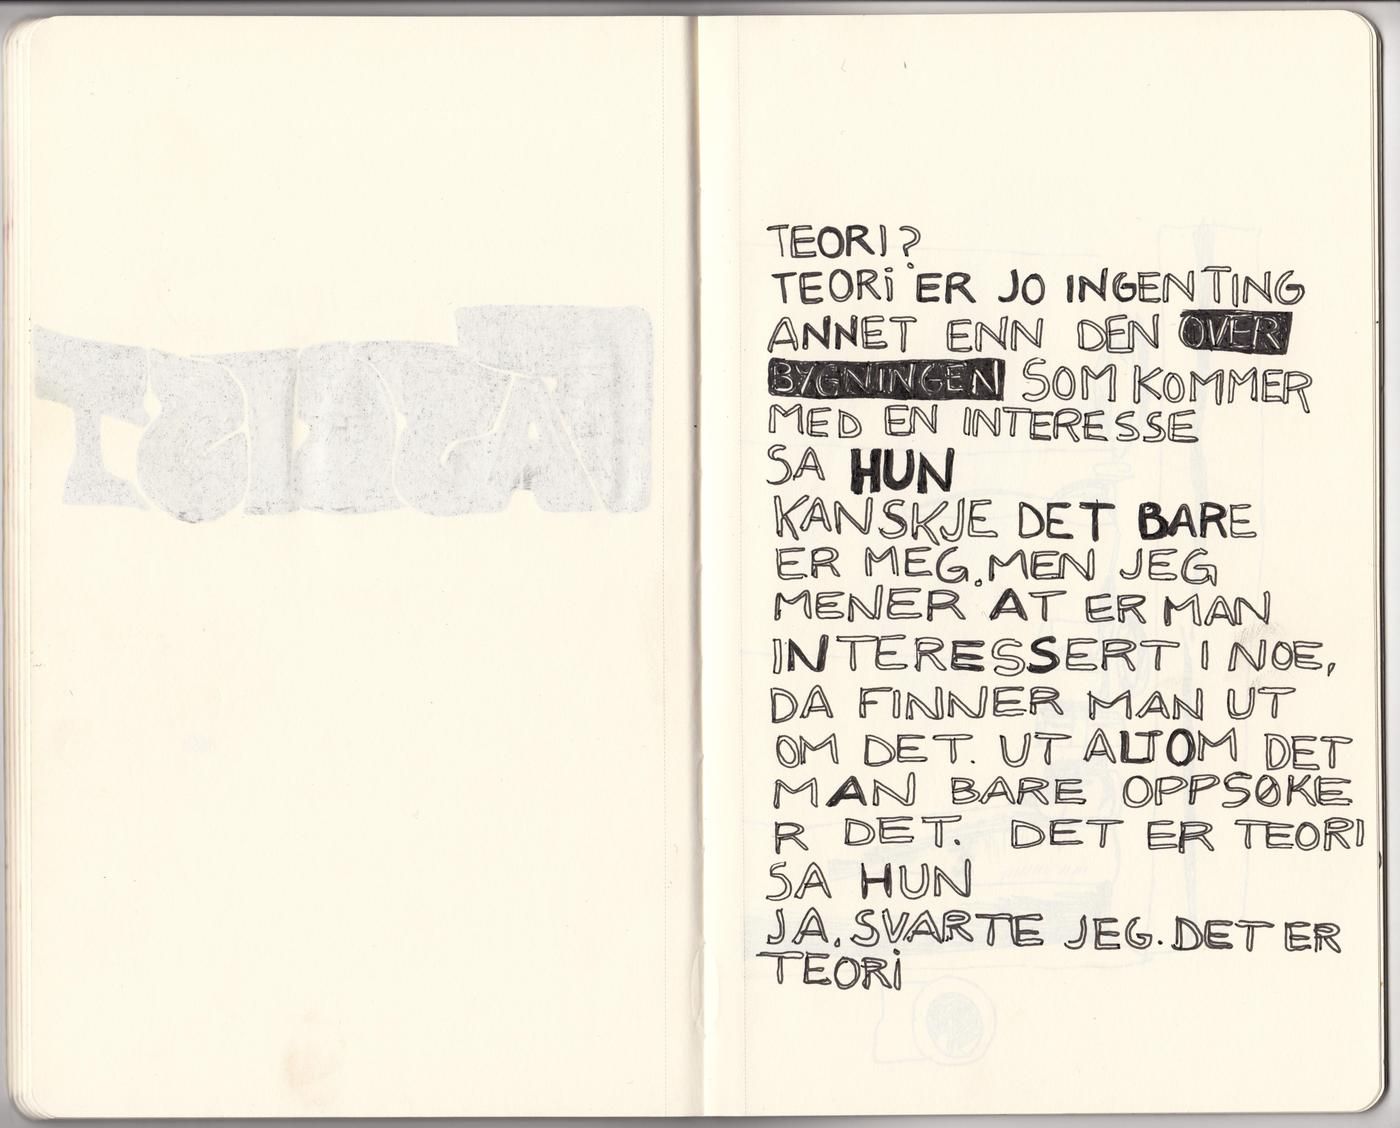 TEORI?
TEORI ER JO INGENTING
ANNET ENN DEN OVER
BYGNINGEN SOM KOMMER
MED EN INTERESSE
SA HUN
KANSKJE DET BARE
ER MEG. MEN JEG
MENER AT ER MAN
INTERESSERT I NOE,
DA FINNER MAN UT
OM DET. UT ALTOM DET
MAN BARE OPPSØKE
R DET. DET ER TEORI
SA HUN
JA. SVARTE JEG. DET ER
TEORI